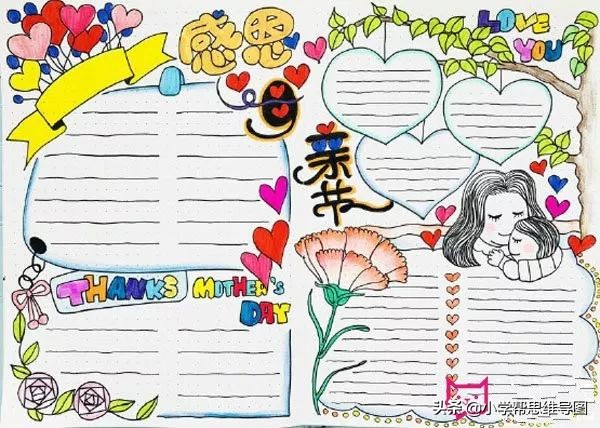 感恩
母
亲节
LOVE
YOU
THANKS MOTHER'S
DAY
头条 @小学帮思维导图